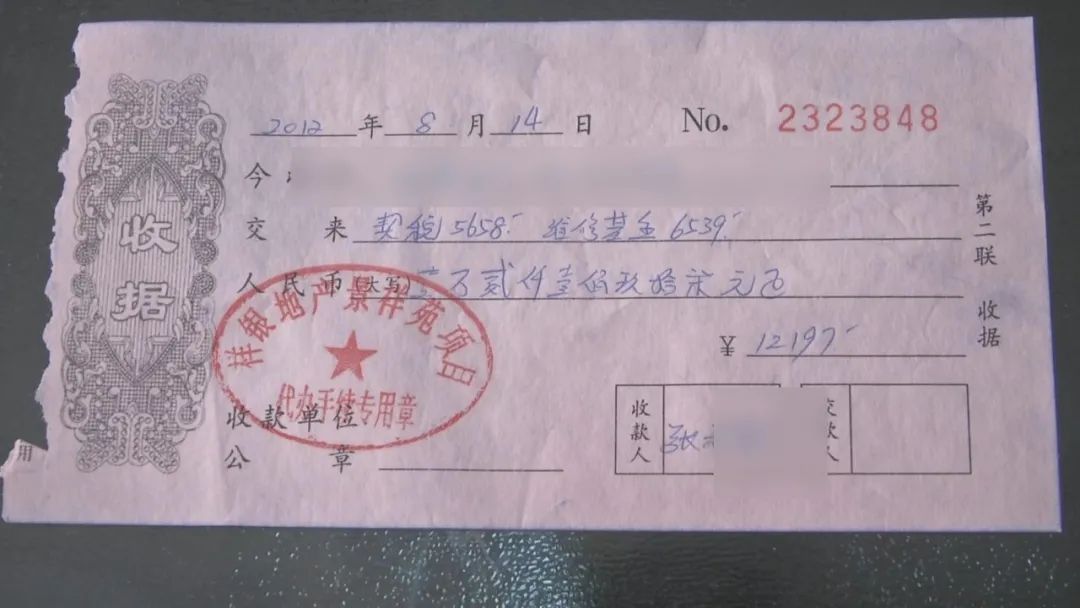 收据
2012年8月14日 No. 2323848
今
交来 契税5658- 维修基金6539-
人民币(大写)壹万贰仟壹佰玖拾柒元正
¥12197-
祥银地产景祥苑项目
代办手续专用章
收款单位
公章
收款人 张
交款人
第二联 收据
用